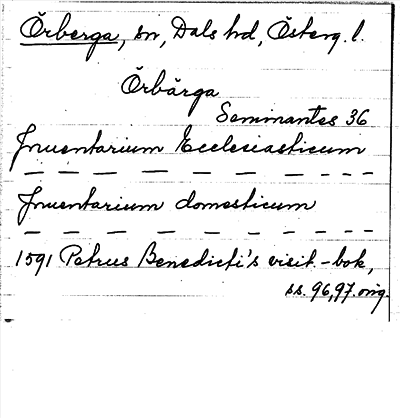 Örberga, sn, Dals hd, Österg. l.
Örbärga
Seminantes 36
Inuentarium Ecclesiasticum
— — — — — — - - -
Inuentarium domesticum
— — — — — — - - -
1591 Petrus Benedicti's visit.-bok,
ss. 96, 97. orig.